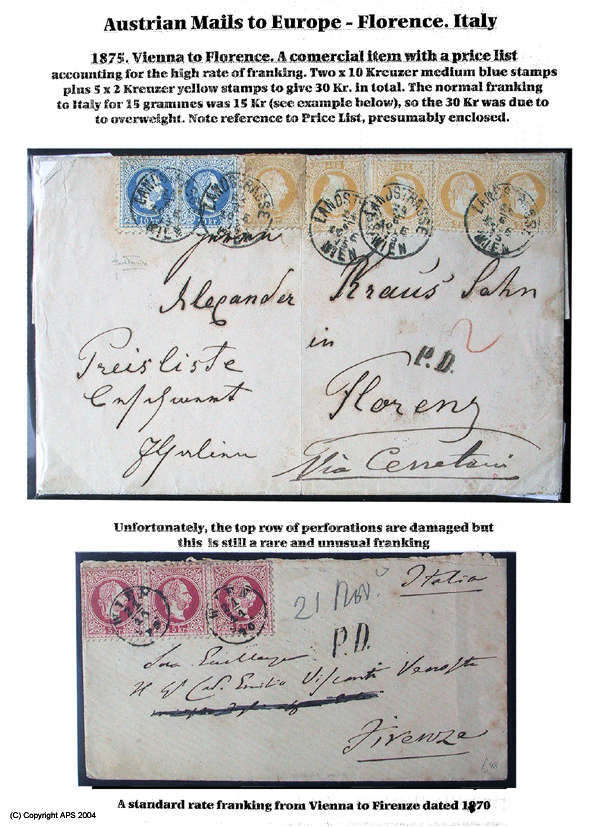 Austrian Mails to Europe - Florence. Italy
1875. Vienna to Florence. A comercial item with a price list
accounting for the high rate of franking. Two x 10 Kreuzer medium blue stamps
plus 5 x 2 Kreuzer yellow stamps to give 30 Kr. in total. The normal franking
to Italy for 15 grammes was 15 Kr (see example below), so the 30 Kr was due to
to overweight. Note reference to Price List, presumably enclosed.
LANDSTRASSE WIEN
LANDSTRASSE WIEN
LANDSTRASSE WIEN
LANDSTRASSE WIEN
LANDSTRASSE WIEN
Alexander Kraus Sohn
in
2
P.D.
Preisliste
Florenz
Via Cerretani
Unfortunately, the top row of perforations are damaged but
this is still a rare and unusual franking
WIEN
WIEN
Italia
21 Nov.
P.D.
Emilio Visconti Venosta
Firenze
A standard rate franking from Vienna to Firenze dated 1870
(C) Copyright APS 2004